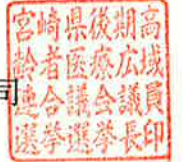 宮崎県後期高
齢者医療広域
司
連合議会議員
選挙選挙長印